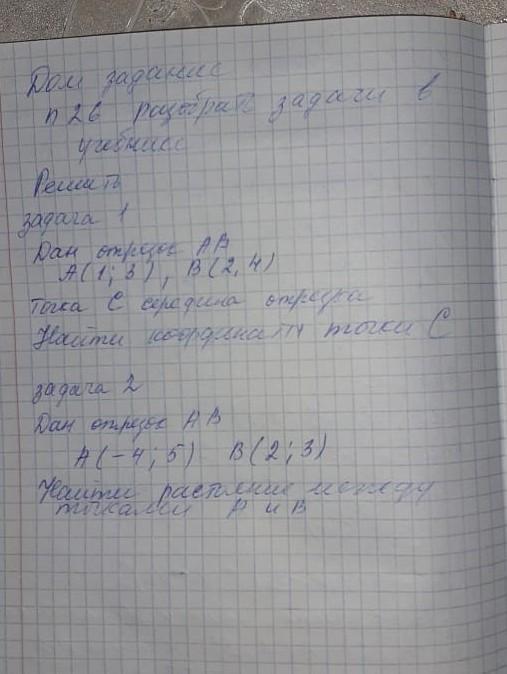 Дом задание
п 26 разобрать задачи в
учебнике
Решить
задача 1
Дан отрезок АВ
А(1; 3), В(2,4)
Точка С середина отрезка
Найти координаты точки С
задача 2
Дан отрезок АВ
А(-4; 5) В(2; 3)
Найти растояние между
точками А и В